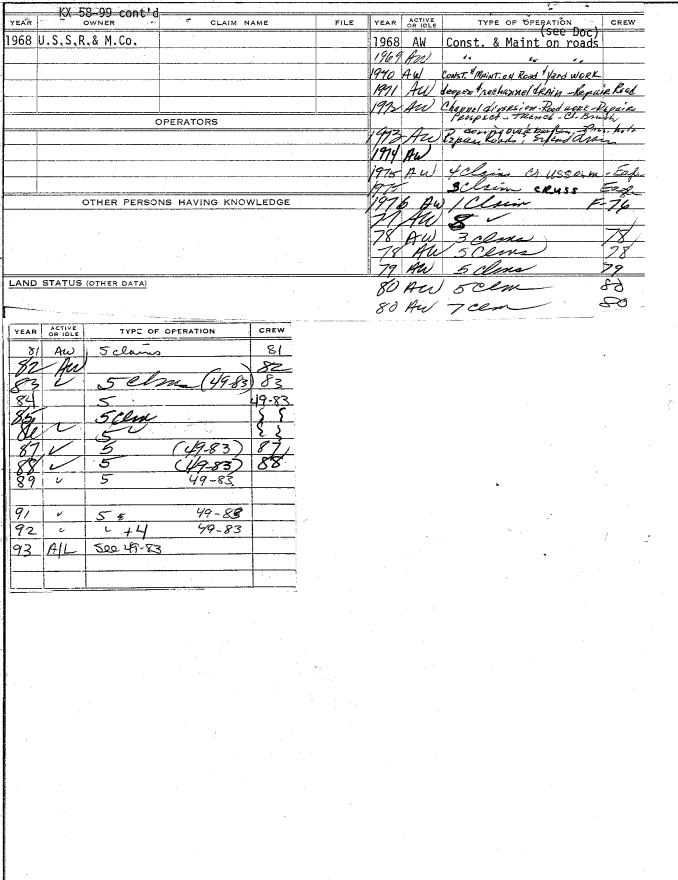 KX 58-99 cont'd
YEAR OWNER CLAIM NAME FILE
1968 U.S.S.R.& M.Co.
OPERATORS
OTHER PERSONS HAVING KNOWLEDGE
LAND STATUS (OTHER DATA)
YEAR ACTIVE OR IDLE TYPE OF OPERATION CREW
(see Doc)
1968 AW Const. & Maint on roads
1969 AW " " "
AW CONST. & MAINT. on Road & Yard WORK
AW deepen & rechannel drain - Repair Road
AW Channel diversion - Road work - Repairs
Prospect - Trench - Brush
1973 AW
Repair Roads; Extend drain
1974 AW
1975 AW 4 Claim
1975 3 Claim
1976 AW 1 Claim F-76
77 AW 8 ✓
78 AW 3 clms 78
78 AW 5 clms 78
79 AW 5 clms 79
80 AW 5 clm 80
80 AW 7 clm 80
YEAR ACTIVE OR IDLE TYPE OF OPERATION CREW
81 AW 5 claims 81
82 AW 82
83 ✓ 5 clms (49-83) 83
84 5 49-83
85 5 clm
86 ✓ 5
87 ✓ 5 (49-83) 87
88 ✓ 5 (49-83) 88
89 " 5 49-83
91 " 5 49-83
92 " " +4 49-83
93 A/L See 49-83